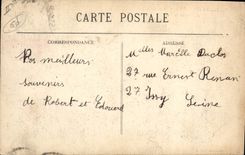 CARTE POSTALE
CORRESPONDANCE
Vos meilleurs
souvenirs
de Robert et Edouard
ADRESSE
Mlles Marcelle Duclos
27 rue Ernest Renan
27 Issy
Seine